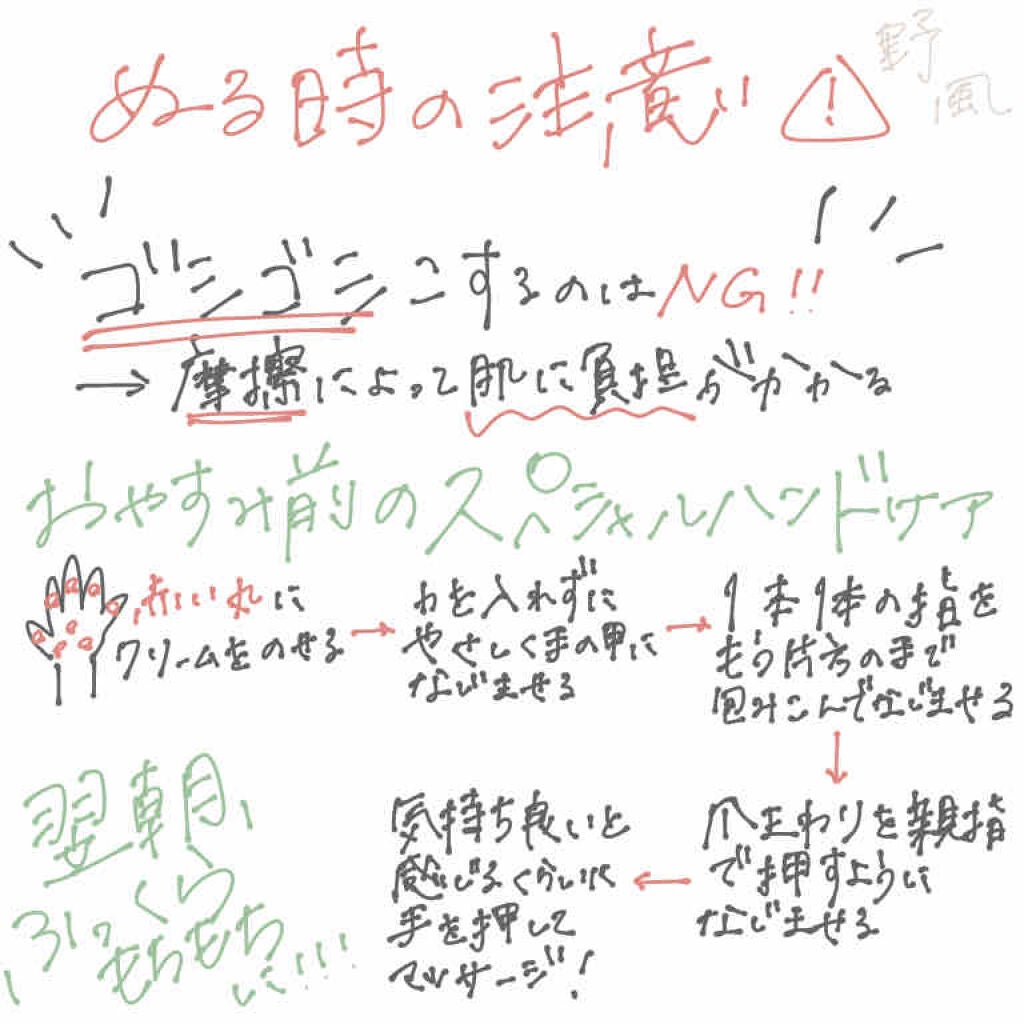 ぬる時の注意
野風
ゴシゴシこするのはNG!!
→摩擦によって肌に負担がかかる
おやすみ前のスペシャルハンドケア
赤い丸に
クリームをのせる
→
力を入れずに
やさしく手の甲に
なじませる
→
1本1本の指を
もう片方の手で
包みこんでなじませる
↓
爪まわりを親指
で押すように
なじませる
←
気持ち良いと
感じるくらいに
手を押して
マッサージ!
翌朝、
ふっくら
もちもち
に!!!